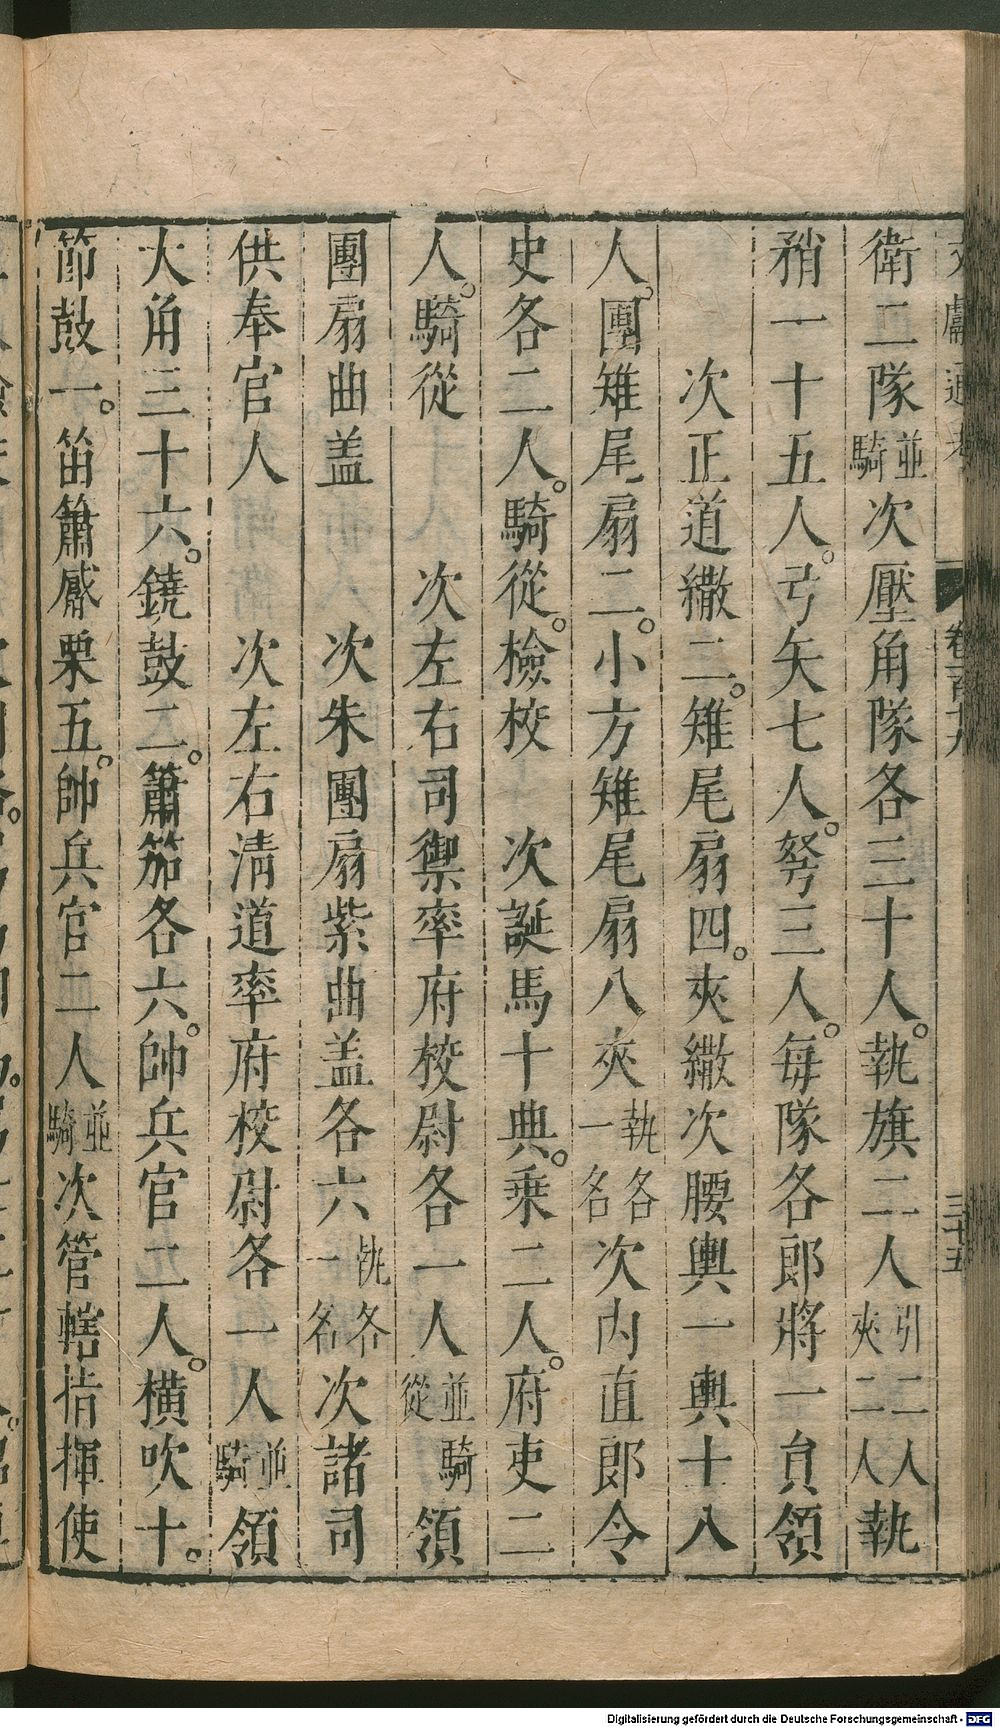 衛二隊並騎次壓角隊各三十人。執旗二人引二人夾二人執
矟一十五人。弓矢七人。弩三人。每隊各郎將一負領
次正道繖二。雉尾扇四。夾繖次腰輿一輿士八
人。團雉尾扇二。小方雉尾扇八夾執各一名各次內直郎令
史各二人。騎從。檢校 次誕馬十典。乗二人。府吏二
人。騎從 次左右司禦率府校尉各一人並騎從領
團扇曲盖 次朱團扇紫曲盖各六執各一名次諸司
供奉官人 次左右清道率府校尉各一人並騎領
大角三十六。鐃鼓二。簫笳各六。帥兵官二人。橫吹十。
節鼓一。笛簫觱栗五。帥兵官二人並騎次管轄指揮使
文獻通考 卷一百十九 三十五
Digitalisierung gefördert durch die Deutsche Forschungsgemeinschaft - DFG